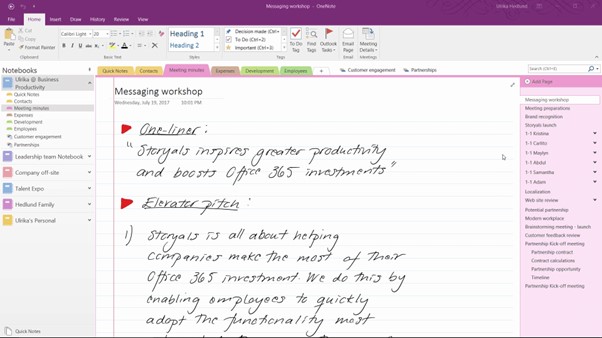 Messaging workshop - OneNote
Ulrika Hedlund
File Home Insert Draw History Review View
Paste
Cut
Copy
Format Painter
Calibri Light 20
Heading 1
Heading 2
Decision made (Ctrl+1)
To Do (Ctrl+2)
Important (Ctrl+3)
To Do Tag
Find Tags
Outlook Tasks
Email Page
Meeting Details
Clipboard Basic Text Styles Tags Email Meetings
Notebooks
Quick Notes Contacts Meeting minutes Expenses Development Employees + Customer engagement Partnerships
Search (Ctrl+E)
Ulrika @ Business Productivity
Quick Notes
Contacts
Meeting minutes
Expenses
Development
Employees
Customer engagement
Partnerships
Leadership team Notebook
Company off-site
Talent Expo
Hedlund Family
Ulrika's Personal
Quick Notes
Messaging workshop
Wednesday, July 19, 2017 10:05 PM
One-liner:
"Storyals inspires greater productivity
and boosts Office 365 investments"
Elevator pitch:
1) Storyals is all about helping
companies make the most of their
Office 365 investment. We do this by
enabling employees to quickly
adopt the functionality most
Add Page
Messaging workshop
Meeting preparations
Brand recognition
Storyals launch
1-1 Kristina
1-1 Carlito
1-1 Maylyn
1-1 Abdul
1-1 Samantha
1-1 Adam
Localization
Web site review
Potential partnership
Modern workplace
Brainstorming meeting - launch
Customer feedback review
Partnership Kick-off meeting
Partnership contract
Contract calculations
Partnership opportunity
Timeline
Partnership Kick-off meeting